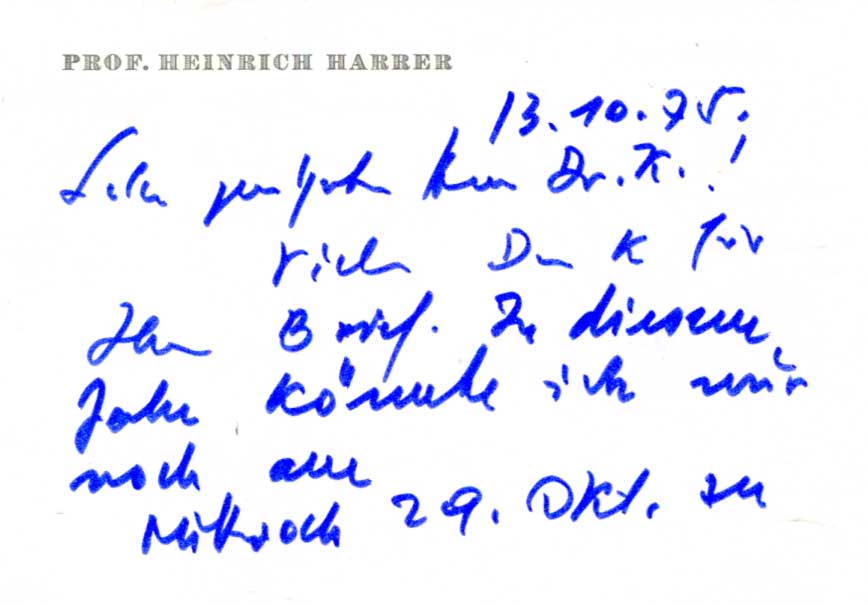 PROF. HEINRICH HARRER
13.10.75.
Sehr geehrter Herr Dr. K.!
Vielen Dank für
Ihren Brief. In diesem
Jahr könnte ich nur
noch am
Mittwoch 29. Okt. zu